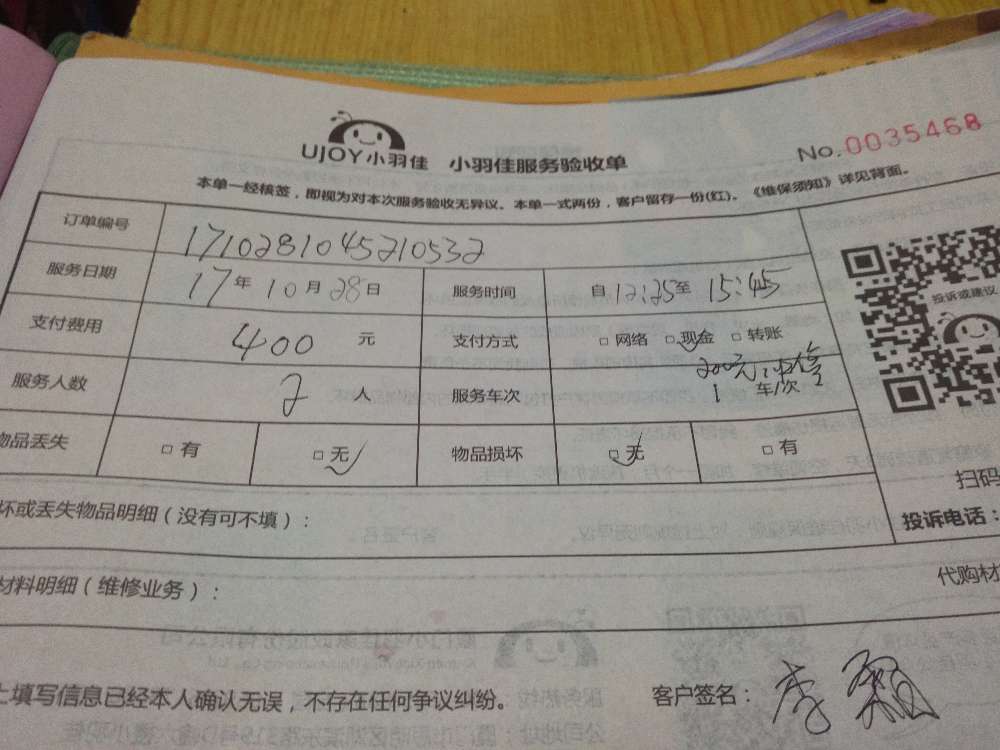 UJOY小羽佳 小羽佳服务验收单 No.0035468
本单一经核签，即视为对本次服务验收无异议。本单一式两份，客户留存一份(红)。《维保须知》详见背面。
订单编号 1710281045210532
服务日期 17年10月28日 服务时间 自12:25至15:45
支付费用 400 元 支付方式 □网络 □现金 □转账
200元
服务人数 2 人 服务车次 1 车/次
物品丢失 □有 □无 物品损坏 □无 □有
投诉或建议
扫码
坏或丢失物品明细（没有可不填）：
投诉电话：
材料明细（维修业务）：
代购材
上填写信息已经本人确认无误，不存在任何争议纠纷。 客户签名：李颖